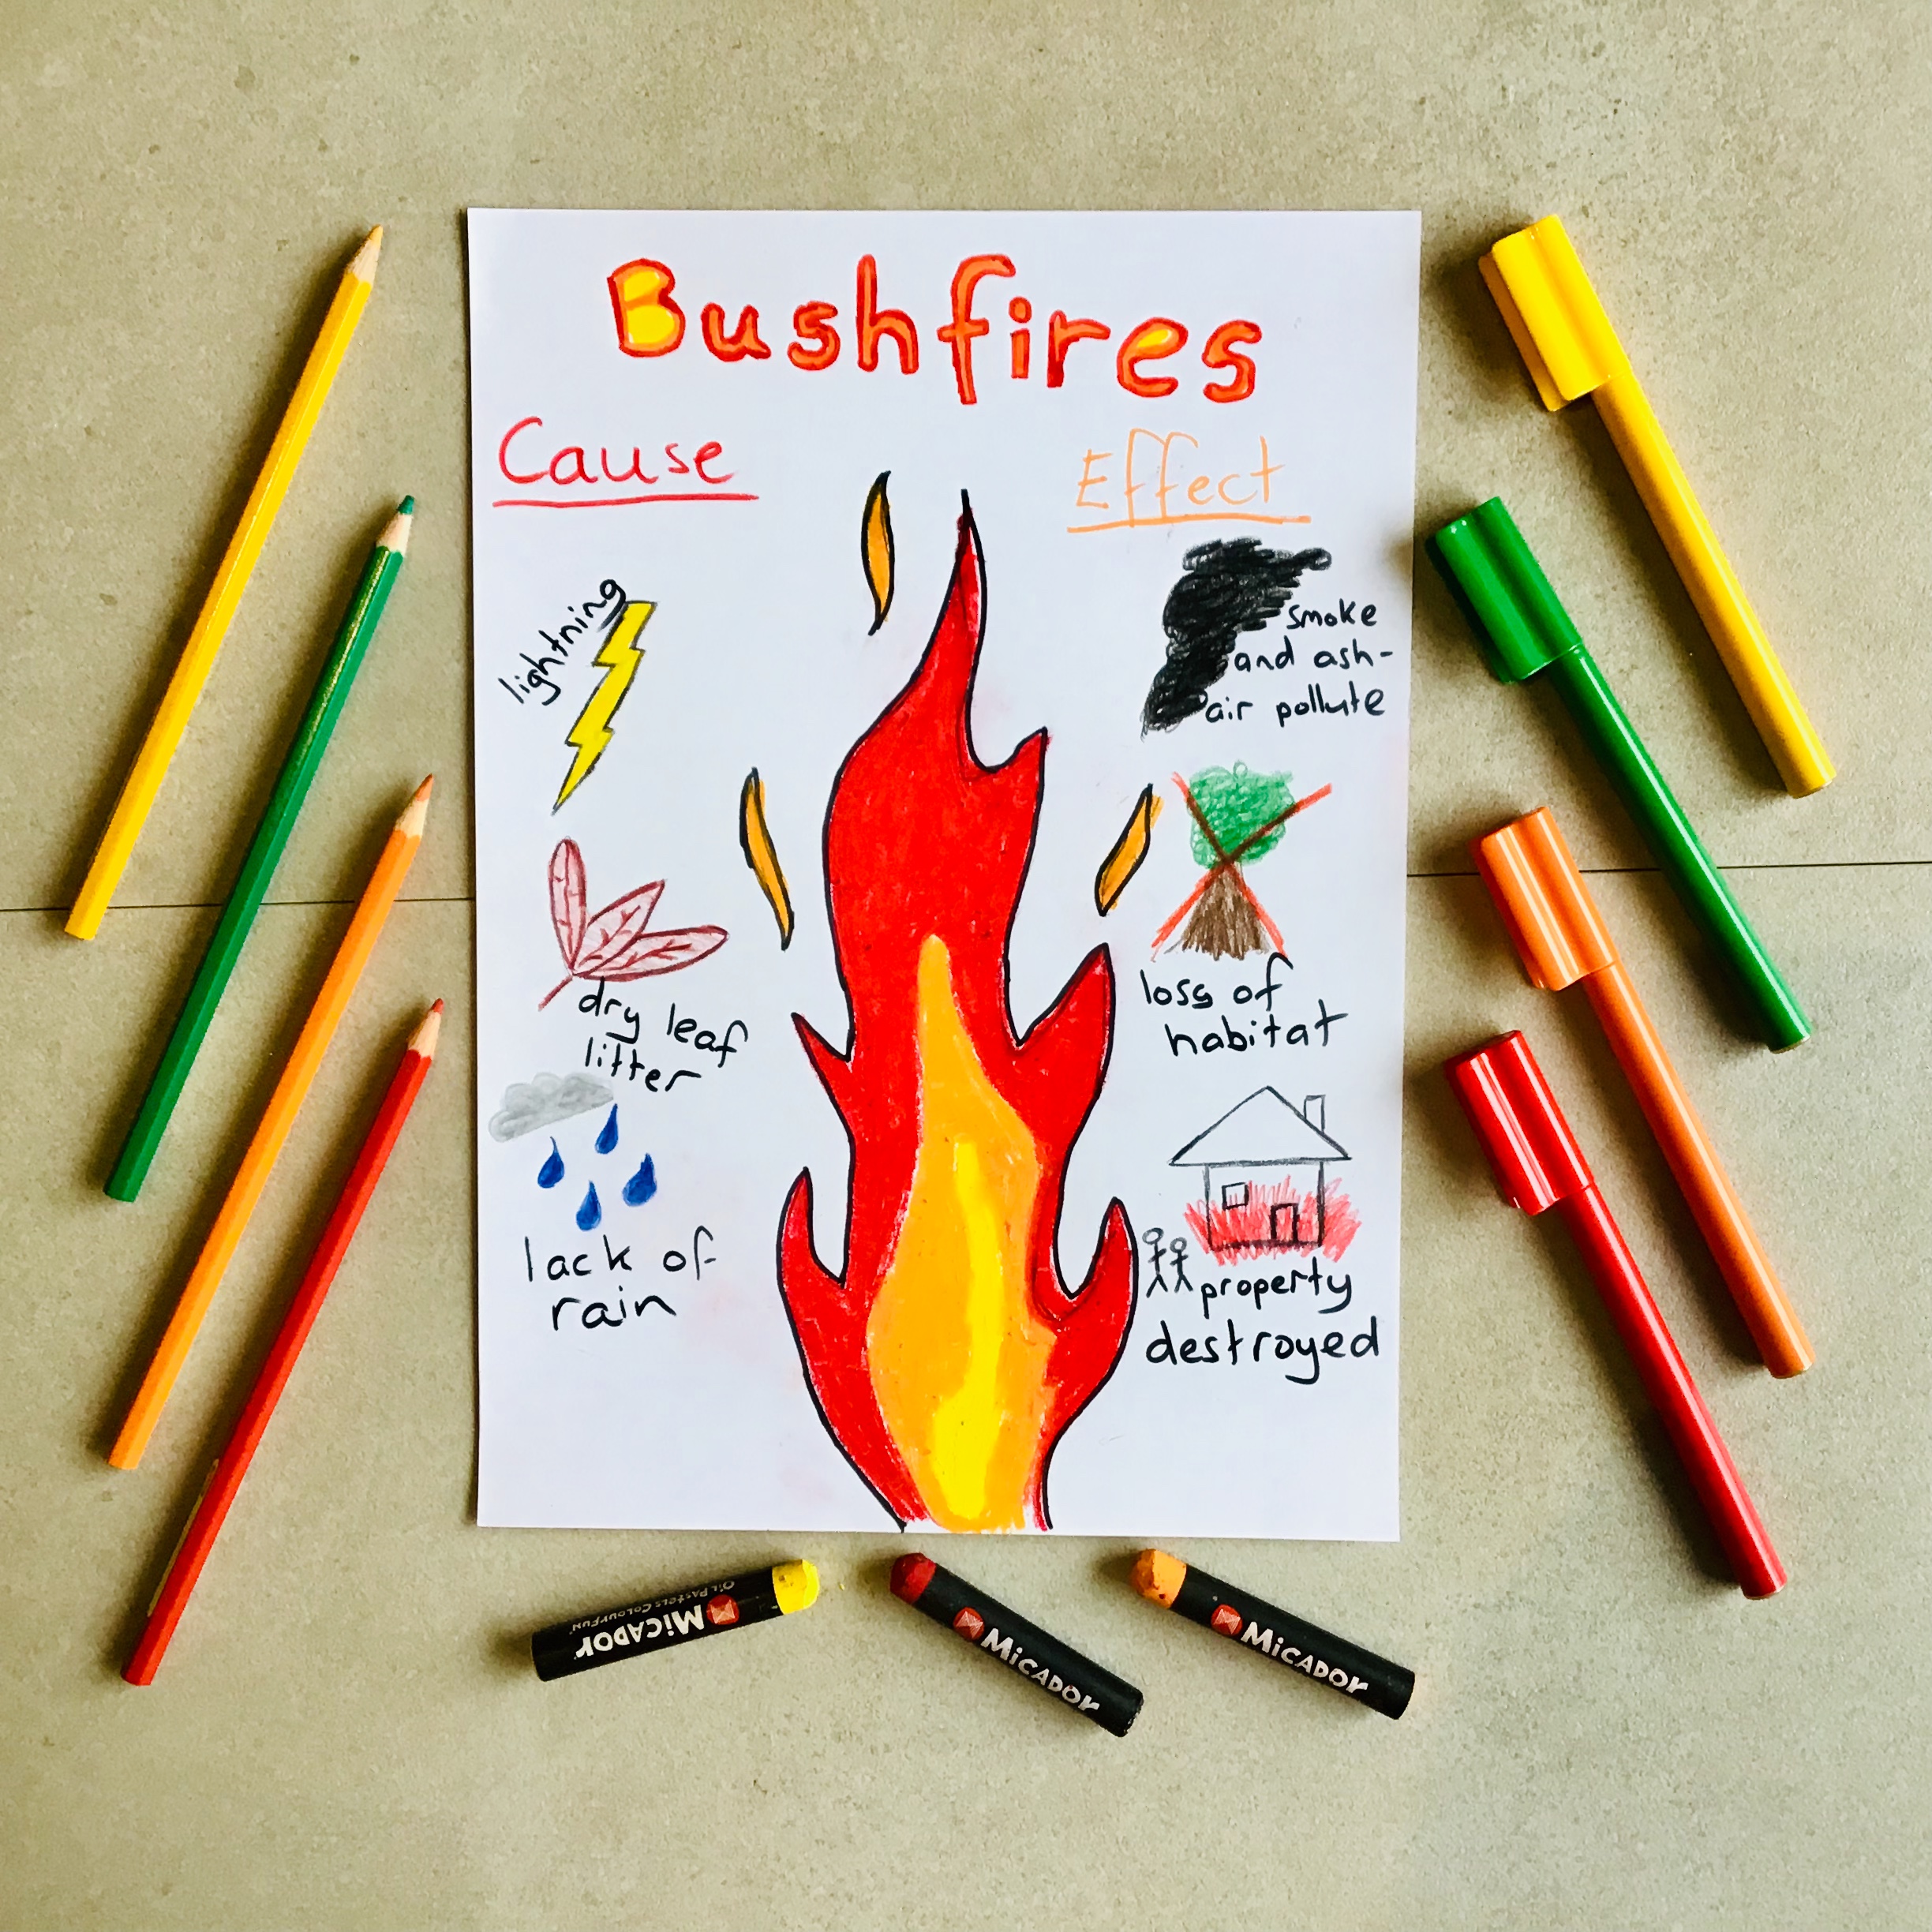 Bushfires
Cause
lightning
dry leaf
litter
lack of
rain
Effect
smoke
and ash-
air pollute
loss of
habitat
property
destroyed
MICADOR
OIL PASTELS COLOURFUN
MICADOR
MICADOR